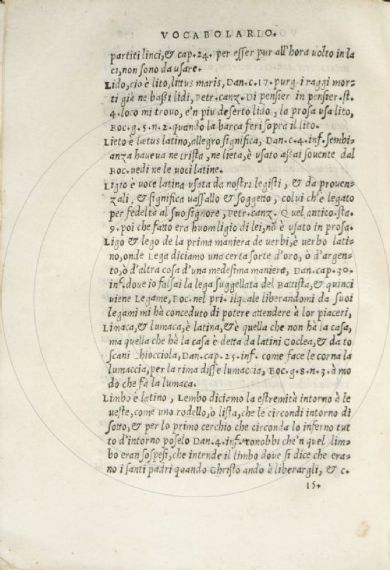 VOCABOLARIO.
partiti linci, & cap. 24. per esser pur all'hora uolto in la
ci, non sono da usare.
Lido, cio è lito, littus maris, Dan. c. 17. purg. i raggi mor=
ti già ne bassi lidi, Petr. canz. Di pensier in pensier. st.
4. loco mi trouo, e'n piu deserto lido, la prosa usa lito,
Boc. g. 5. n. 2. quando la barca ferì sopra il lito.
Lieto è lætus latino, allegro significa, Dan. c. 4. inf. sembi=
anza haueua ne trista, ne lieta, è usato assai souente dal
Boc. uedi ne le uoci latine.
Ligio è uoce latina usata da nostri legisti, & da prouen=
zali, & significa uassallo & soggetto, colui ch'è legato
per fedeltà al suo signore, Petr. canz. Quel antico. sta.
9. poi che fatto era huom ligio di lei, nō è usato in prosa.
Ligo & lego de la prima maniera de uerbi, è uerbo lati=
no, onde Lega diciamo una certa sorte d'oro, ò d'argen=
to, ò d'altra cosa d'una medesima maniera, Dan. cap. 30.
inf. doue io falsai la lega suggellata del Battista, & quinci
uiene Legame, Boc. nel pri. ilquale liberandomi da suoi
legami mi hà conceduto di potere attendere à lor piaceri,
Limaca, & lumaca, è latina, & è quella che non hà la casa,
ma quella che hà la casa è detta da latini Coclea, & da to
scani Chiocciola, Dan. cap. 25. inf. come face le corna la
lumaccia, per la rima disse lumaccia, Boc. g. 8. n. 3. à mo
do che fà la lumaca.
Limbo è latino, Lembo diciamo la estremità intorno à le
ueste, come uno rodello, ò lista, che le circondi intorno di
sotto, & per lo primo cerchio che circonda lo inferno tut
to d'intorno poselo Dan. 4. inf. conobbi che'n quel lim=
bo eran sospesi, che intende il limbo doue si dice che era=
no i santi padri quando Christo andò è liberargli, & c.
15.